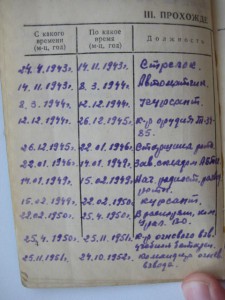 III. ПРОХОЖДЕ
С какого времени (м-ц, год) По какое время (м-ц, год) Должность
24.4.1943г. 14.11.1943г. Стрелок.
14.11.1943г. 8.3.1944г. Автоматчик.
8.3.1944г. 12.12.1944г. Курсант.
12.12.1944г. 26.12.1945г. К-р орудия Т-34-
85.
26.12.1945г. 22.01.1946г. Старшина роты
22.01.1946г. 14.01.1949г. Зав. складом
14.01.1949г. 15.02.1949г. Нач.
роты.
15.02.1949г. 22.02.1950г. курсант.
22.02.1950г. 25.4.1950г. В распоряж. ком.
Урал. ВО.
25.4.1950г. 25.11.1951г. К-р огневого взв.
25.11.1951г. 24.10.1952г. Командир огнев.
взвода.